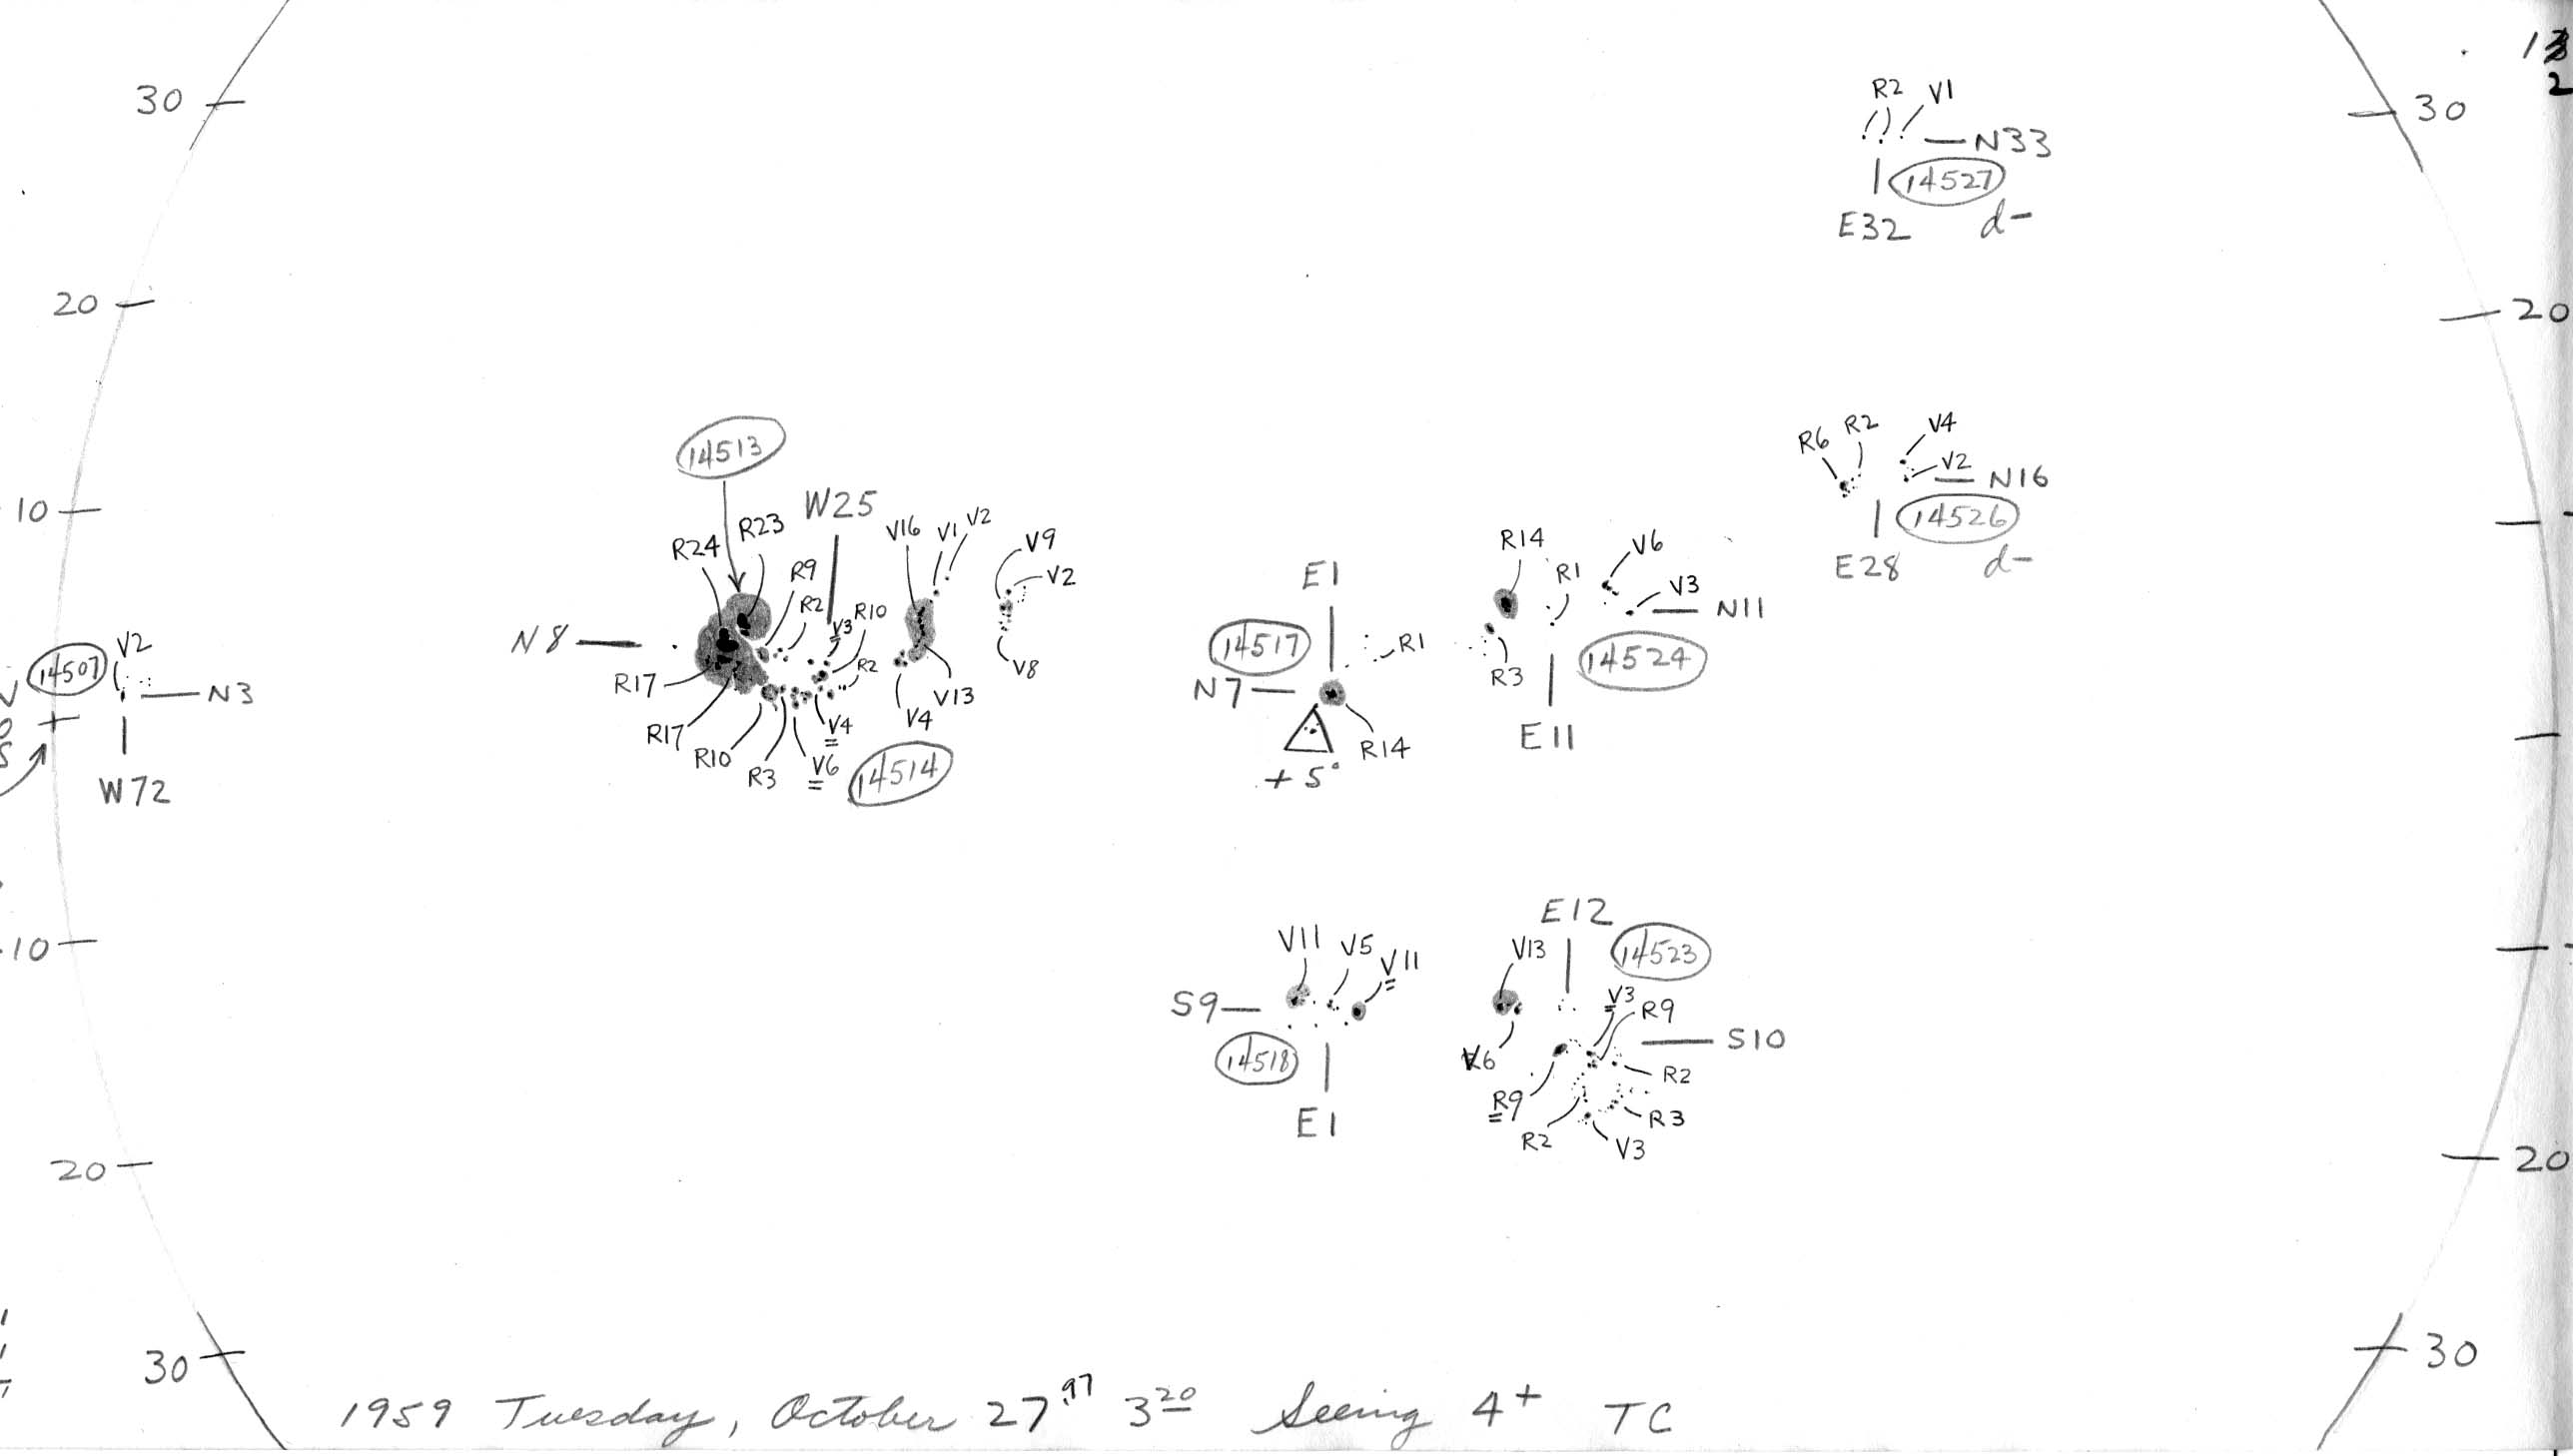 30
30
20
20
10
10
20
30
20
30
R2 V1
N33
14527
E32 d-
R6 R2 V4
V2
N16
14526
E28 d-
14513
W25
R24 R23
R9
R2
V3
R10
R2
N8
R17
R17
R10
R3
V6
V4
14514
V16 V1 V2
V4
V13
V9
V2
V8
14507
V2
N3
W72
E1
14517
R1
N7
R14
+5°
R14
R1
V6
V3
N11
R3
14524
E11
V11 V5 V11
S9
14518
E1
E12
14523
V13
V3
R9
V6
S10
R9
R2
R2
R3
V3
1959 Tuesday, October 27.97 3 20 Seeing 4+ TC